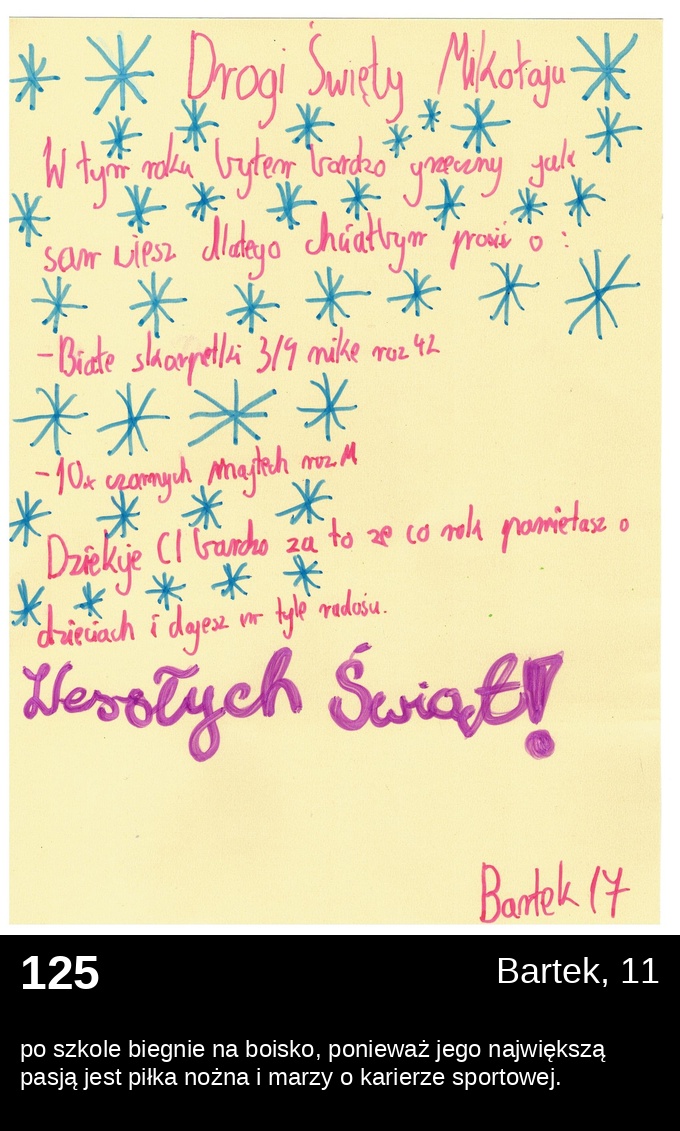 Drogi Święty Mikołaju
W tym roku byłem bardzo grzeczny jak
sam wiesz dlatego chciałbym prosić o :
-Białe skarpetki 3/4 nike roz 42
-10x czarnych majtech roz. M
Dziekuje CI bardzo za to ze co rok pamietasz o
dzieciach i dajesz nr tyle radości.
Wesołych Świąt!
Bartek 17
125
Bartek, 11
po szkole biegnie na boisko, ponieważ jego największą
pasją jest piłka nożna i marzy o karierze sportowej.